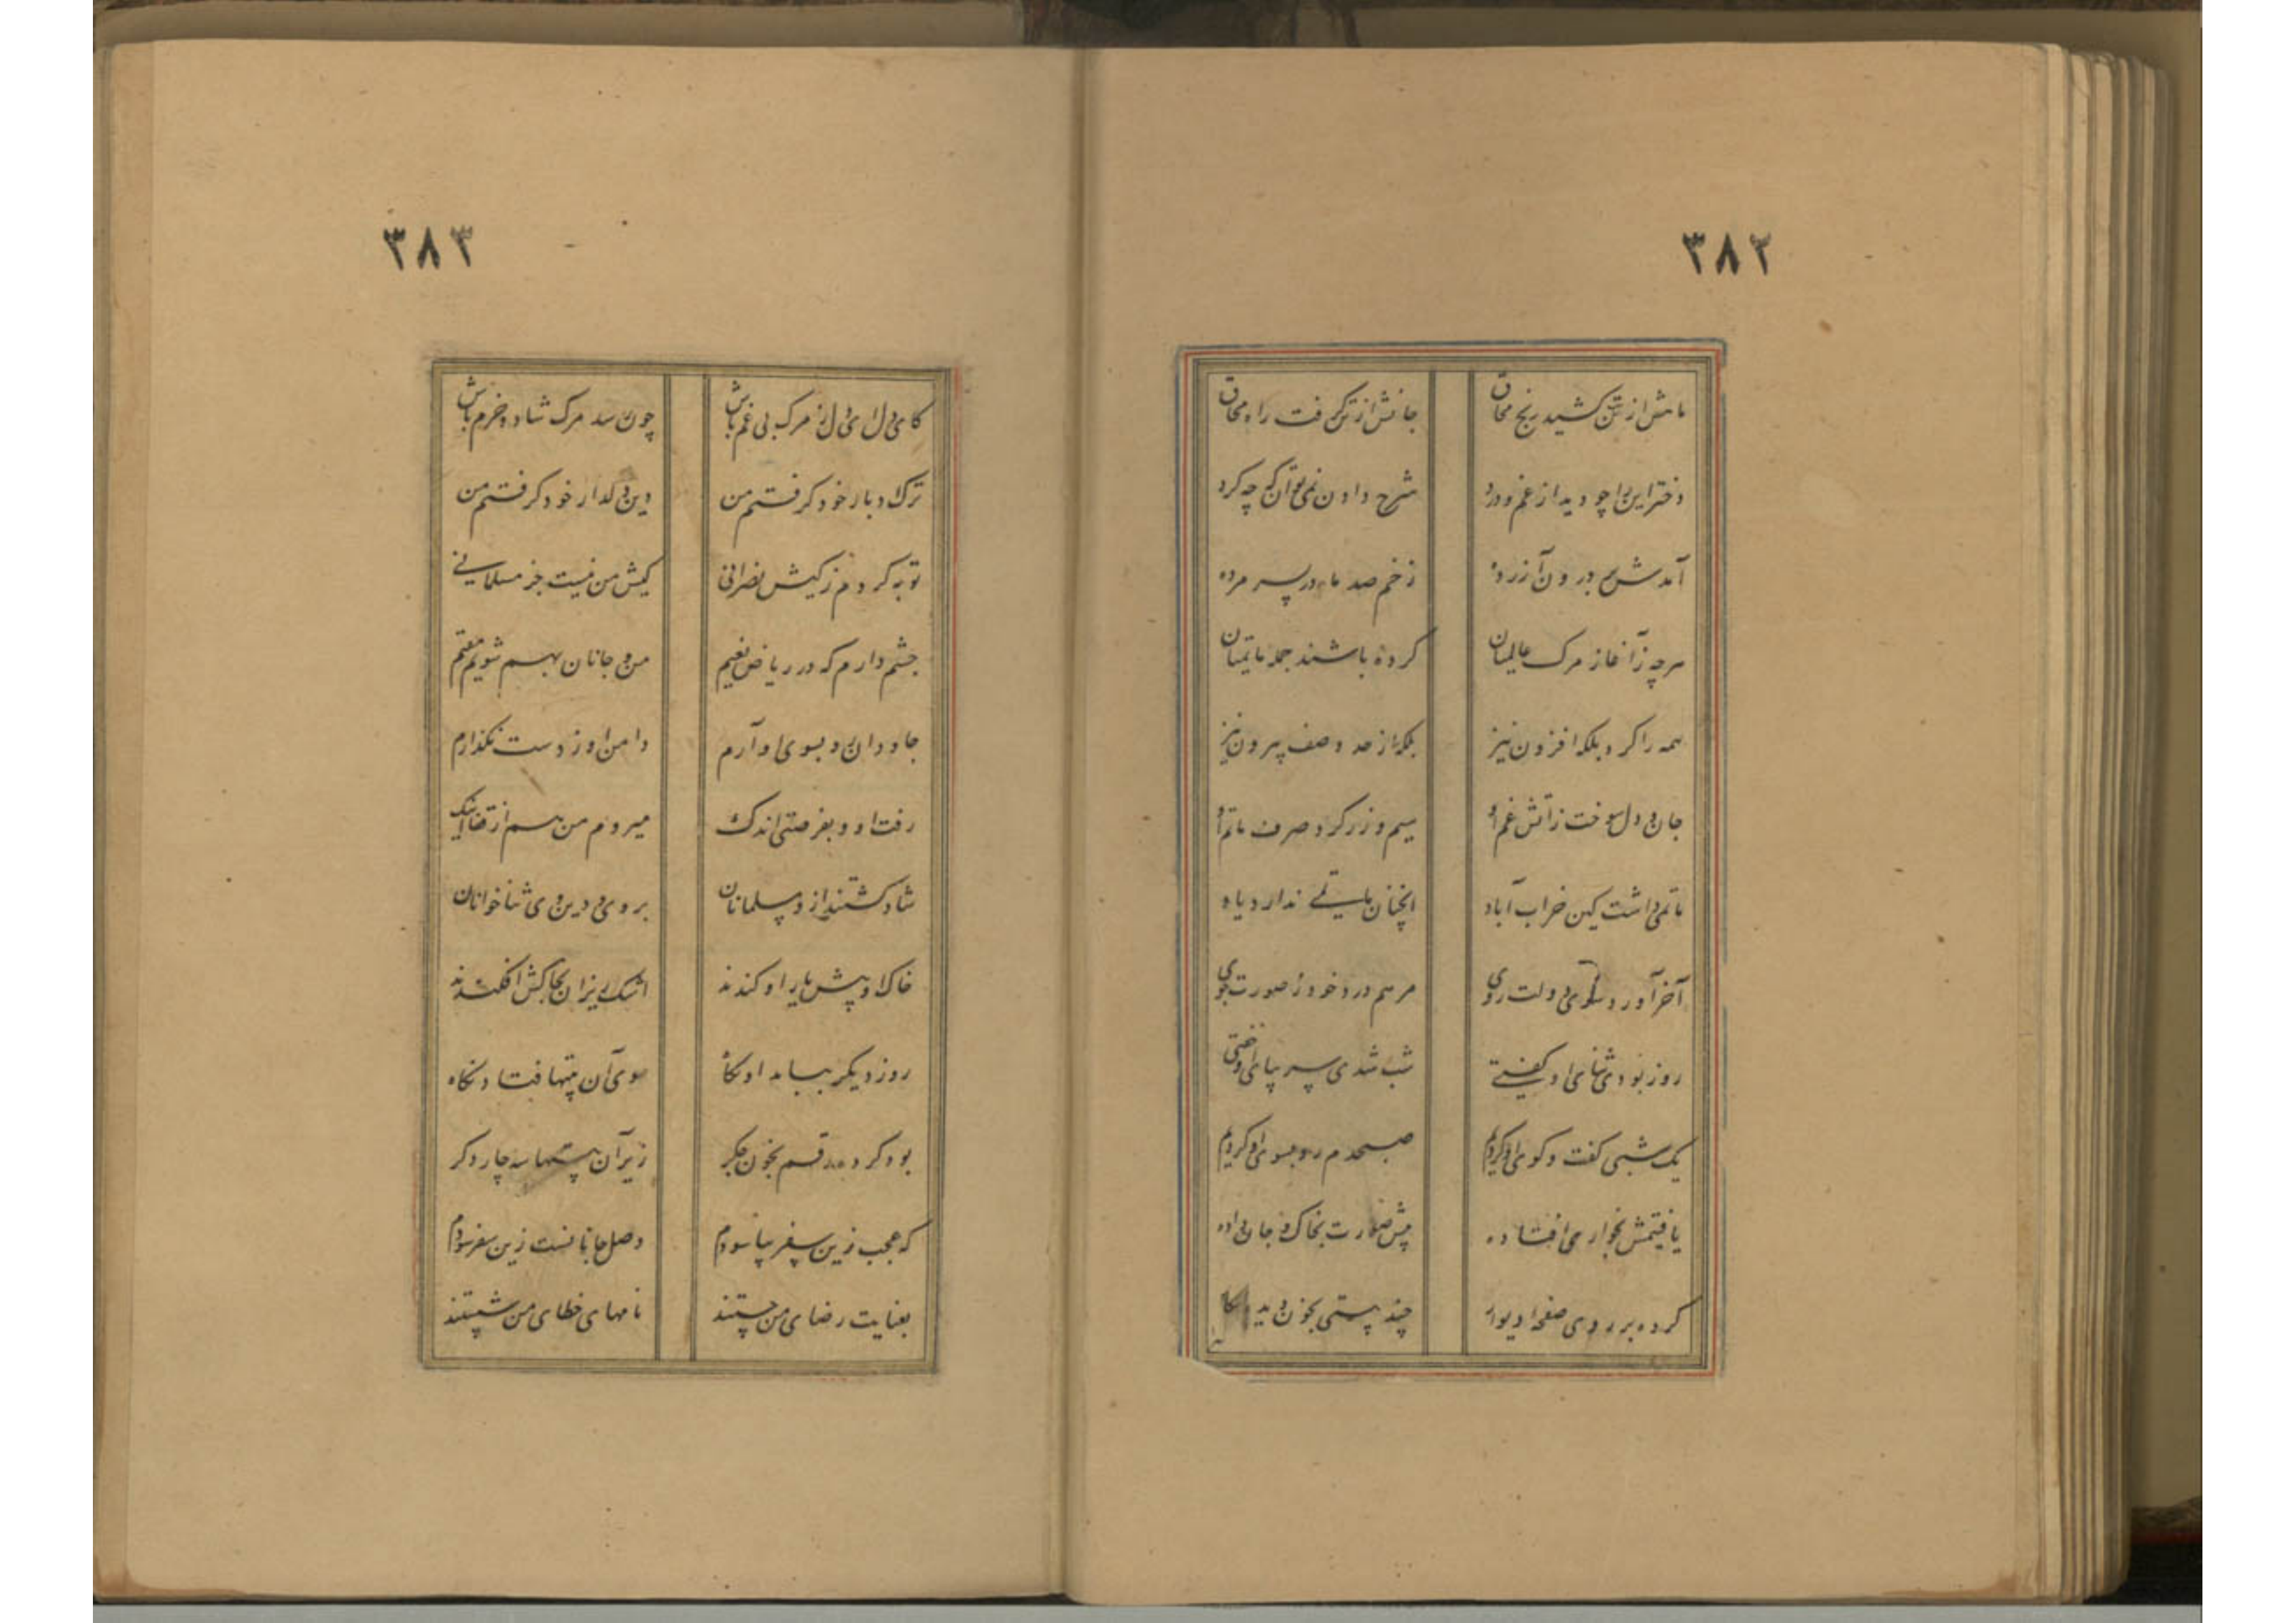 ۳۸۲
ماهش از تب کشید رنج محاق جانش از تن گرفت راه محاق
دختر این را چو دید از غم و درد شرح دادن نمی توان که چه کرد
آمدش بر درون آزرده زخم صد مادر پسر مرده
هرچه ز آغاز مرک عالمیان کرده باشند جمله ماتمیان
همه را کرد بلکه افزون نیز بلکه از حد وصف بیرون نیز
جان و دل سوخت ز آتش غم او سیم و زر کرد صرف ماتم او
ماتمی داشت کین خراب آباد آنچنان ماتمی ندارد یاد
آخر آورد سوی دولت روی مرهم درد خود ز صورت جوی
روز بودی ثنای او گفتی شب شدی سر بپای او خفتی
یک شبی گفت و گوی او کردیم صبحدم رو بسوی او کردیم
یافتیمش بخواری افتاده پیش صورت بخاک و جان داده
کرده بر روی صفحه دیوار چند بیتی بخون دیده نکار
۳۸۳
کای دل ای دل ز مرک بی غم باش چون رسد مرک شاد و خرم باش
ترک دیار خود کرفتم من دین دلدار خود کرفتم من
توبه کردم ز کیش نصرانی کیش من نیست جز مسلمانی
چشم دارم که در ریاض نعیم من و جانان بهم شویم مقیم
جاودان رو بسوی او آرم دامن او ز دست نکذارم
رفت او و بفرصتی اندک میروم من هم از قفا اینک
شاد کشتند از و مسلمانان بر وی و دین وی ثنا خوانان
خاک او پیش یار او کندند اشک ریزان بخاکش افکندند
روز دیکر بیامد او ناکاه سوی آن بیتها فتاد نکاه
بود کرده رقم بخون جکر زیر آن بیتها سه چار دکر
که عجب زین سفر بیاسودم وصل جانانست زین سفر سودم
بعنایت رضای من جستند نامهای خطای من شستند